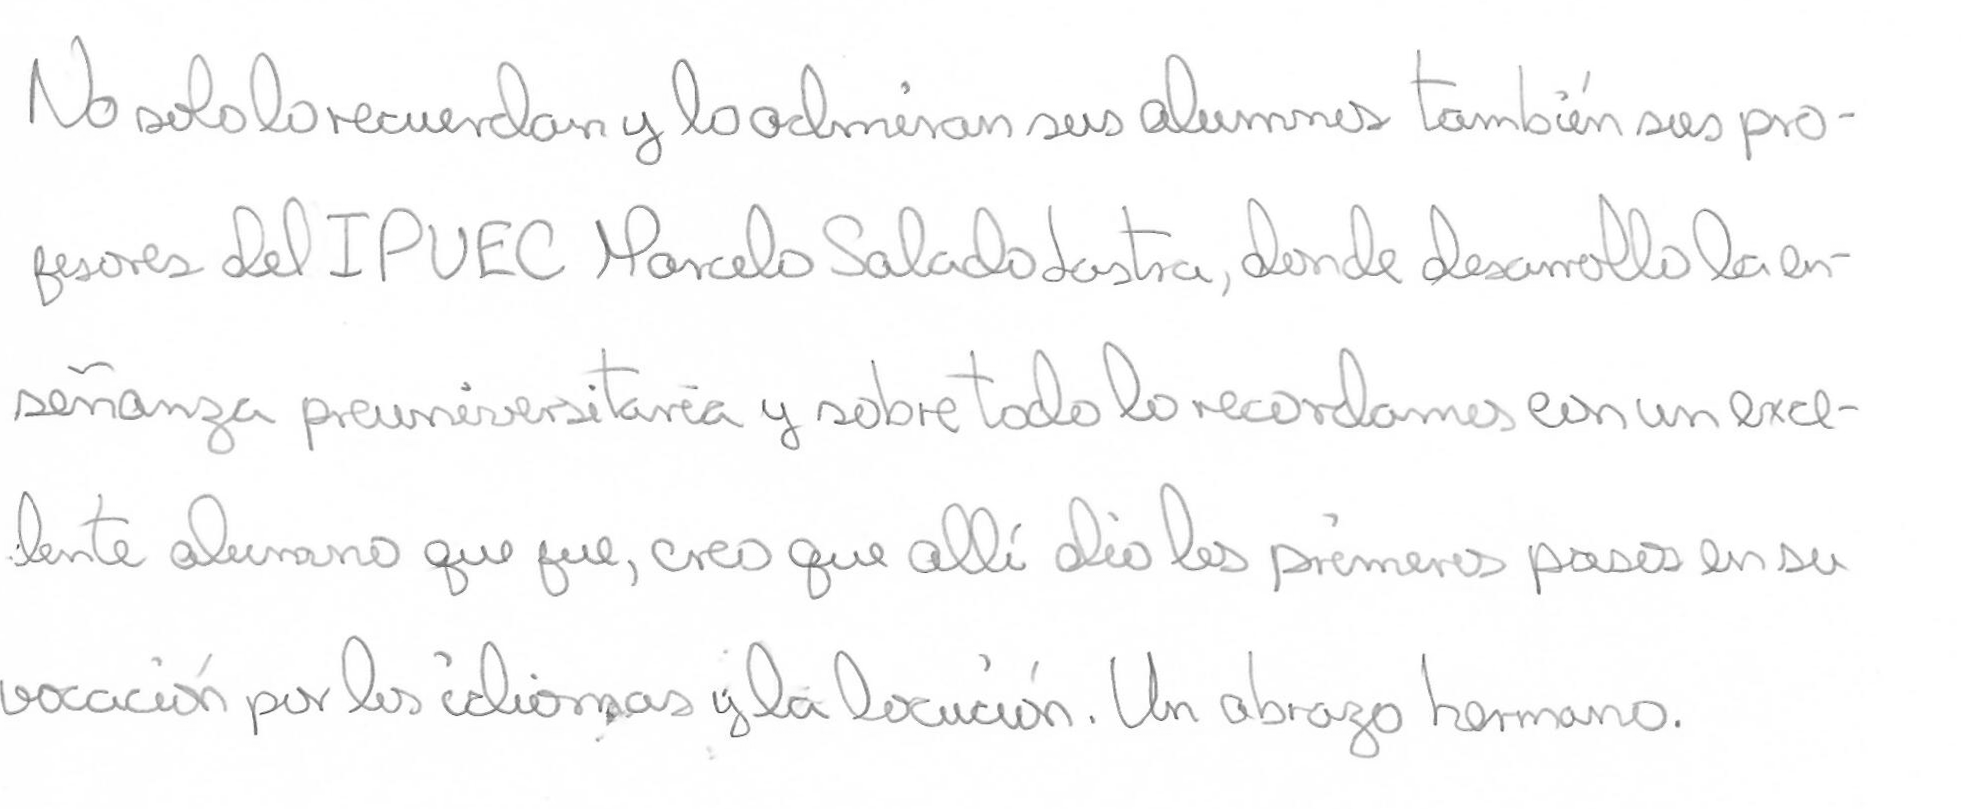 No solo lo recuerdan y lo admiran sus alumnos también sus pro-
fesores del IPUEC Marcelo Salado Lastra, donde desarrollo la en-
señanza preuniversitaria y sobre todo lo recordamos con un exce-
lente alumno que fue, creo que allí dio los primeros pasos en su
vocación por los idiomas y la locución. Un abrazo hermano.